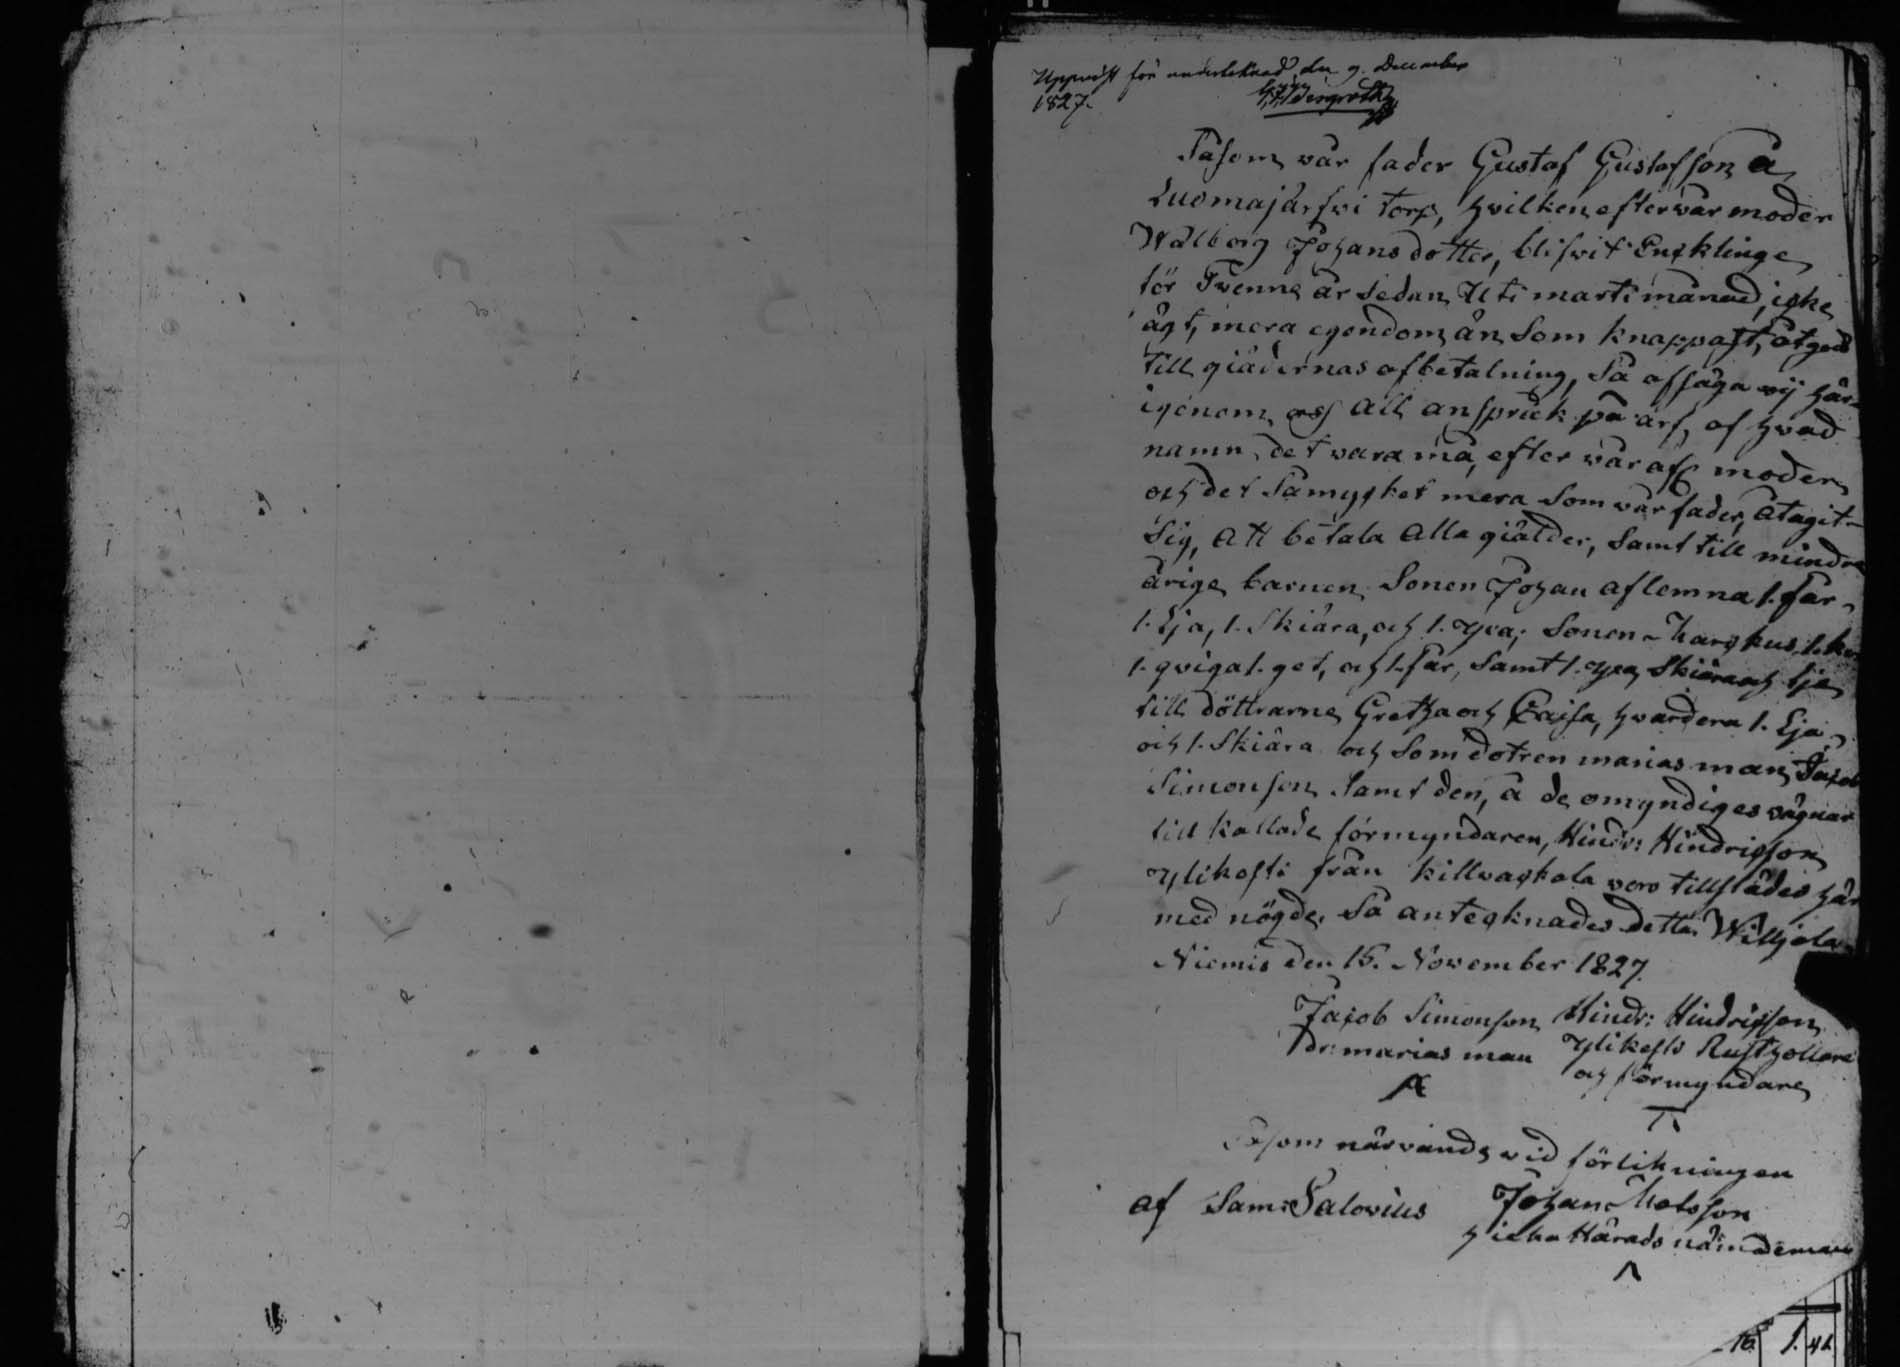 Uppvist för undertecknad den 9. December
1827.
Såsom vår fader Gustaf Gustafsson å
Luomajärfwi torp, hvilken efter vår moder
Walborg Johansdotter, blifwit Encklinge
för Tvenne år sedan Uti marti månad, icke
ägt, mera egendom än Som knappast, åtgår
till giädernas afbetalning, Så afsäga wij här-
igenom oss all anspråk på arf, af hvad
namn det vara må, efter vår afl moder
och det Såmycket mera Som vår fader, Åtagit-
Sig, Att betala Alla giälder, Samt till mindre
årige barnen Sonen Johan aflemna 1. får
1. Lja, 1. Skiära, och 1. yxa; Sonen Marckus, 1. ko
1. qviga 1. get, och 1. får, Samt 1. yxa, Skiära och Lja
till döttrarna Gretha och Caisa, hvardera 1. Lja
och 1. Skiära och Som dotren marias man Jacob
Simonson Samt den, å de omyndiges vägnar
till kallade förmyndaren, Hindr: Hindricsson
Ylikosti från killvackola voro tillstädes här
med nögde. Så antecknades detta Willjola
Niemis den 15. November 1827.
Jacob Simonson Hindr: Hindricsson
dr: marias man Ylikosts Rusthollare
och förmyndare
Såsom närvande vid förlikningen
af Sam: Salovius Johan Matsson
Häradsnämndeman
16 1. 42